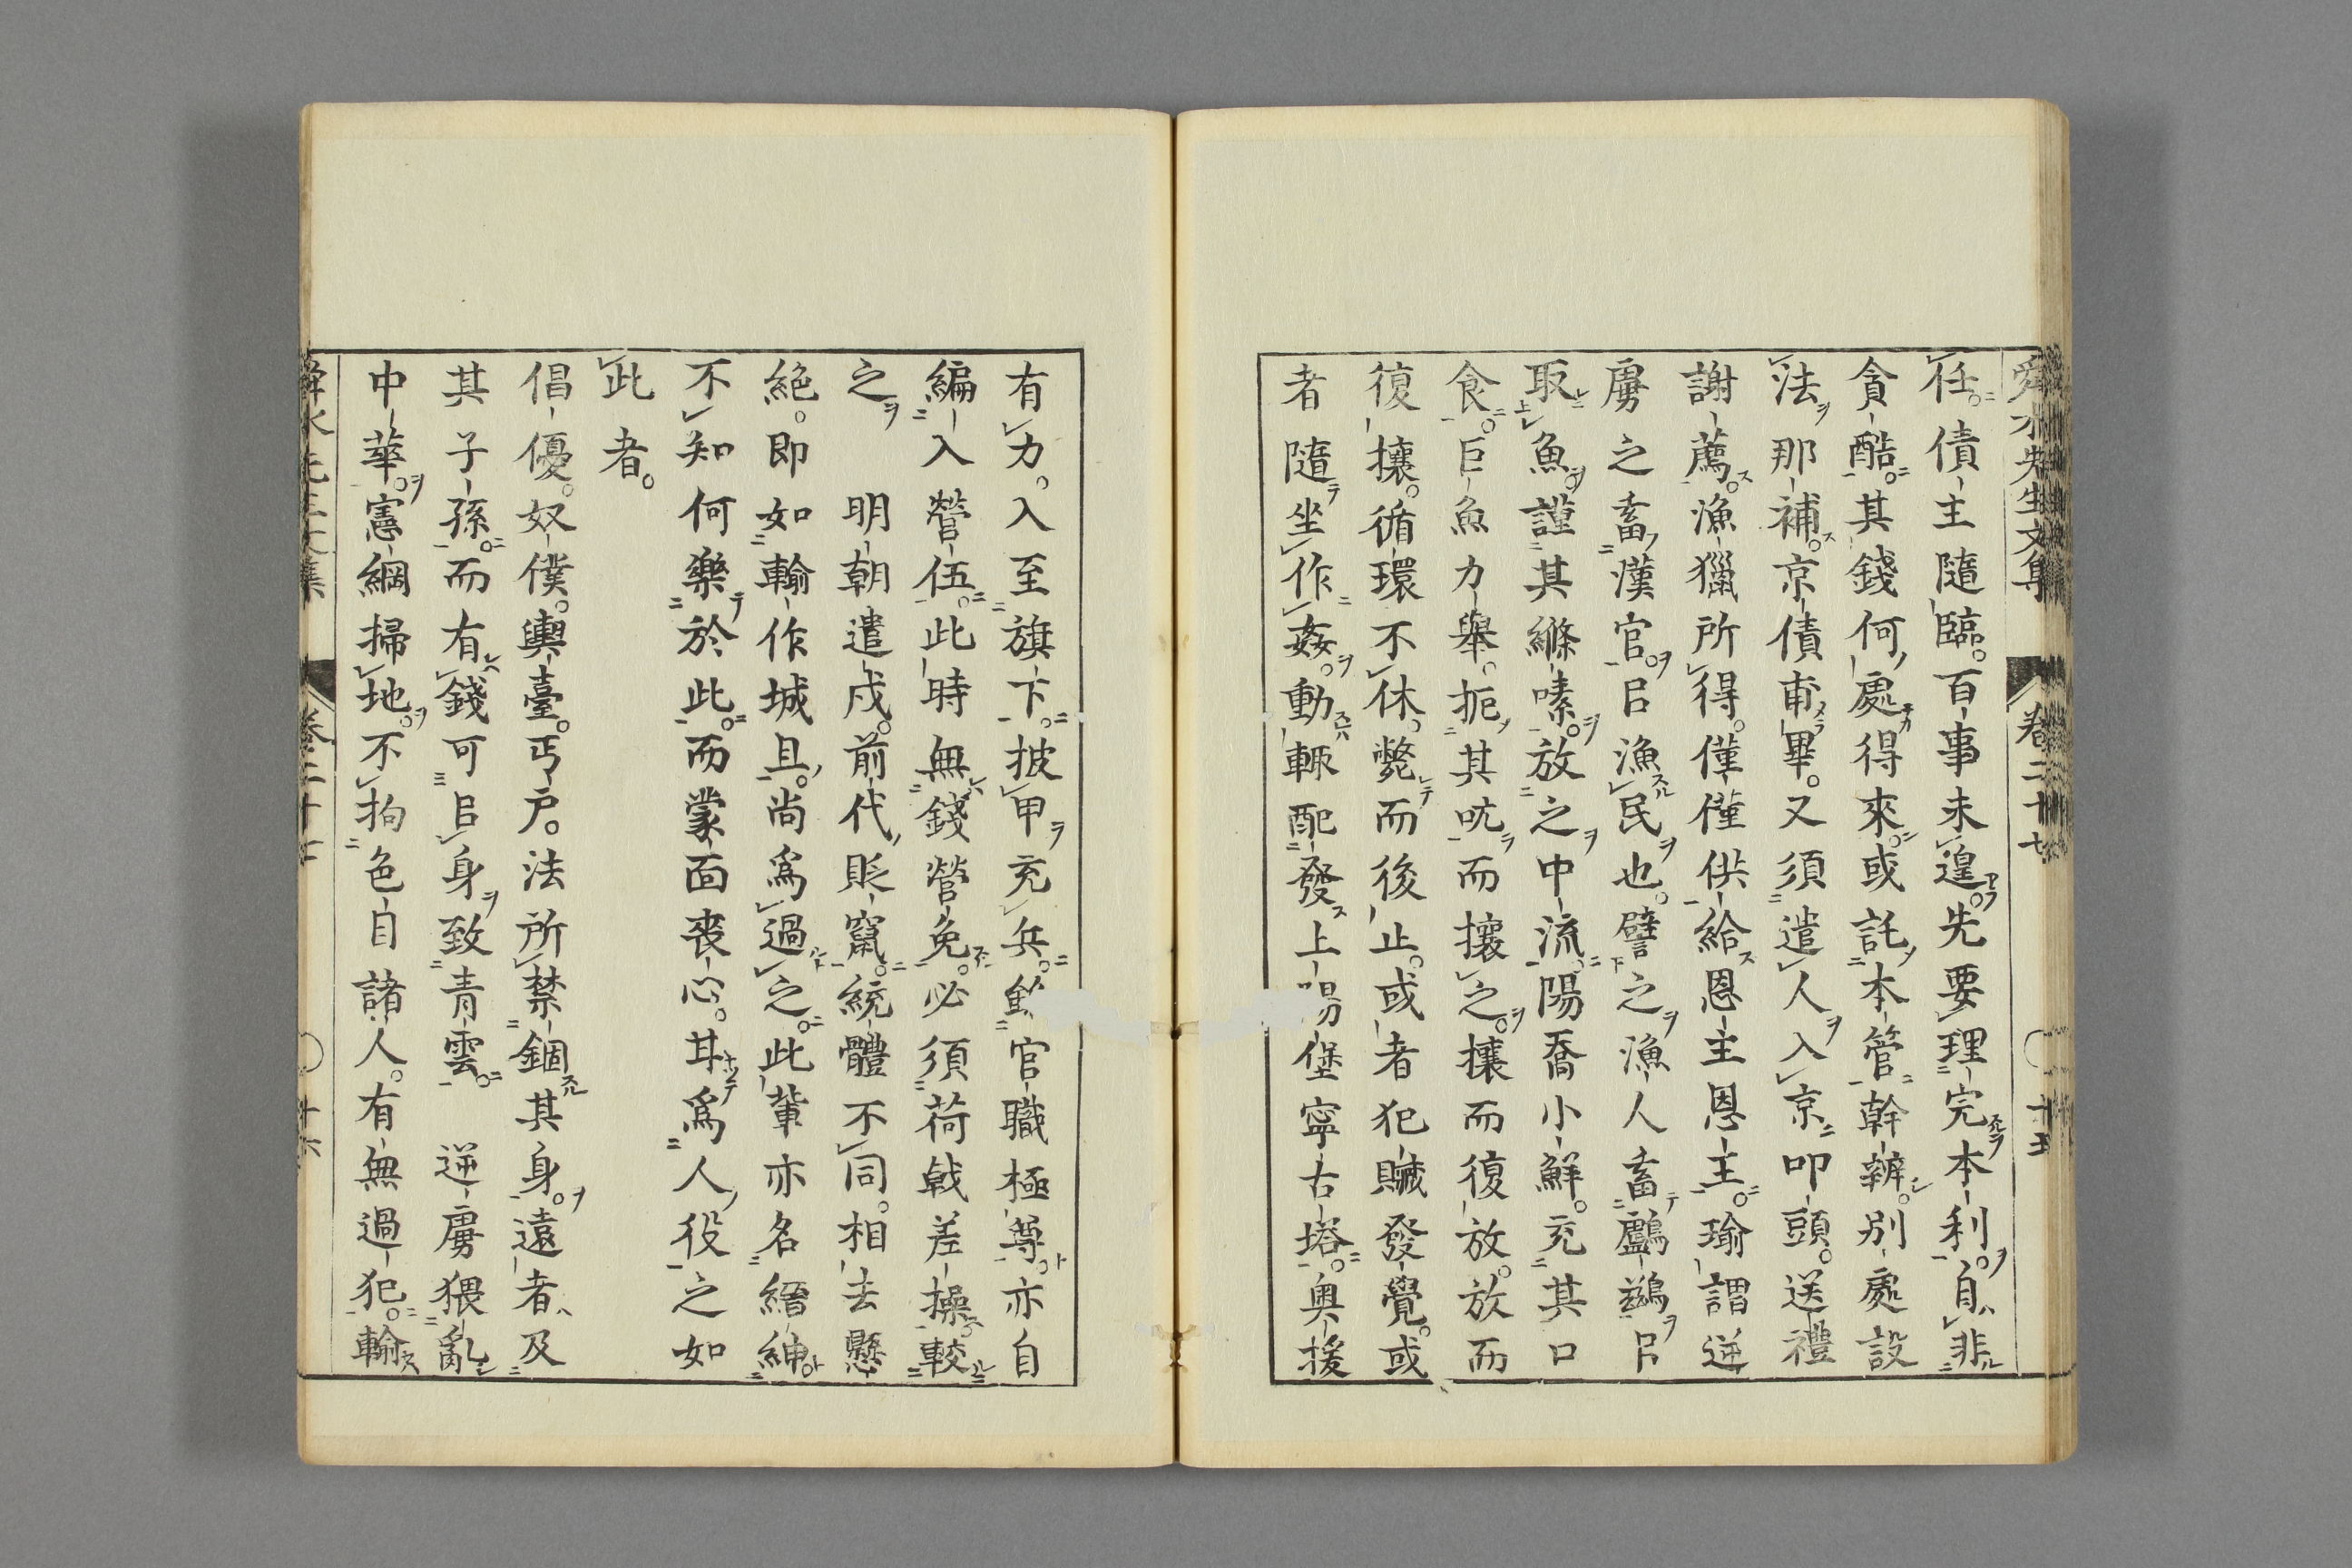 舜水先生文集 卷二十七 十五
任債主隨臨百事未遑先要理完本利自非
貪酷其錢何處得來或託本管幹辦別處設
法那補京債甫畢又須遣人入京叩頭送禮
謝薦漁獵所得僅僅供給恩主恩主瑜謂逆
虜之畜漢官㠯漁民也譬之漁人畜鸕鷀㠯
取魚謹其縧嗉放之中流陽喬小鮮充其口
食巨魚力舉扼其吭而攘之攘而復放放而
復攘循環不休斃而後止或者犯贓發覺或
者隨坐作姦動輒配發上陽堡寧古塔奥援
有力入至旗下披甲充兵官職極尊亦自
編入營伍此時無錢營免必須荷戟差操較
之 明朝遣戍前代貶竄統體不同相去懸
絕即如輸作城旦尚爲過之此輩亦名縉紳
不知何樂於此而蒙面喪心甘爲人役之如
此者
倡優奴僕輿臺丐户法所禁錮其身遠者及
其子孫而有錢可㠯身致青雲 逆虜猥亂
中華憲綱掃地不拘色目諸人有無過犯輸
舜水先生文集 卷二十七 十六